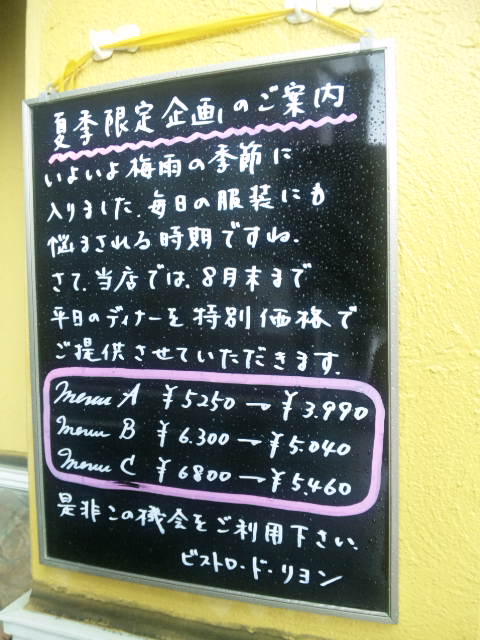 夏季限定企画のご案内
いよいよ梅雨の季節に
入りました。毎日の服装にも
悩まされる時期ですね。
さて、当店では、8月末まで
平日のディナーを特別価格で
ご提供させていただきます。
Menu A ¥5250→¥3.990
Menu B ¥6.300→¥5.040
Menu C ¥6800→¥5.460
是非この機会をご利用下さい。
ビストロ・ド・リヨン